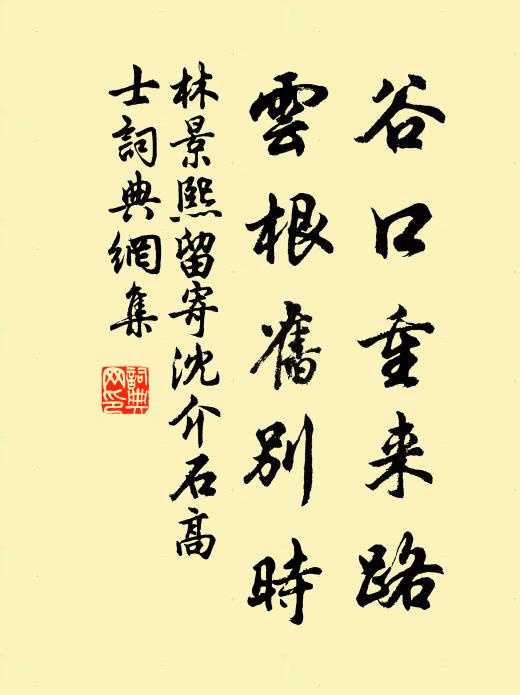 谷口重来路
雲根舊別時
林景熙留寄沈介石高
士詞典網集
詞典网印